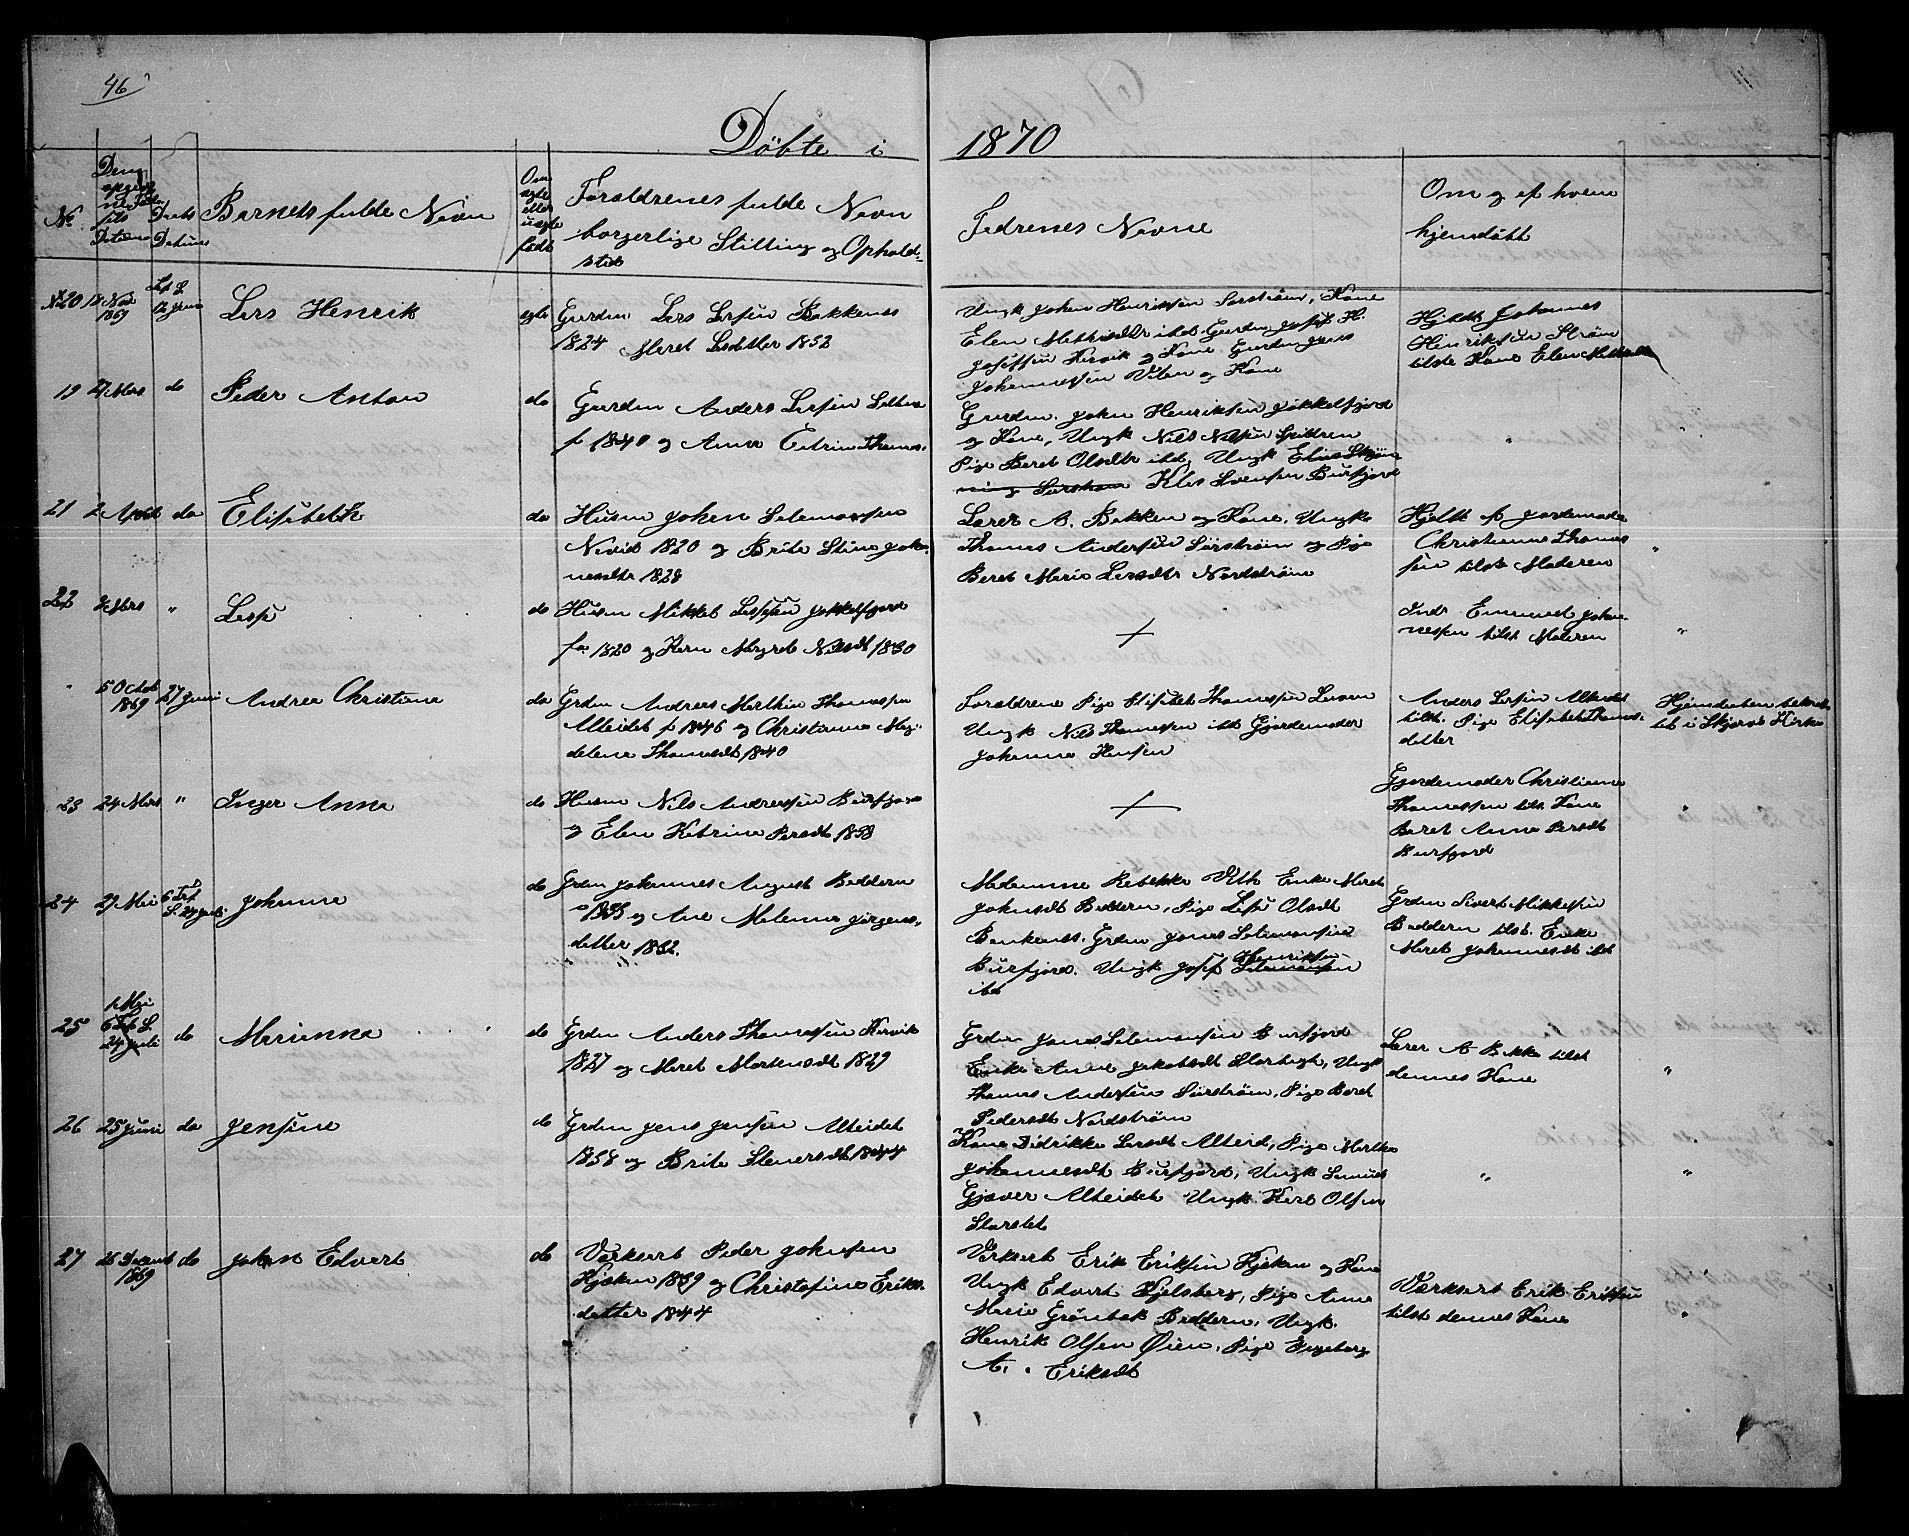 46
Döbte i 1870
No
Daabs
Datum
Barnets fulde Navn
Om
ægte
eller
uægte
født
Forældrenes fulde Navn
borgerlige Stilling og Opholds-
sted
Fadrenes Navne
Om og af hvem
hjemdöbt
No 20
1869
Lars Henrik
ægte
Gaardm Lars Larsen Bakkenes
1824 Maret Larsdatter 1832
Ungk Johan Henriksen Sørstrøm, Kone
Elen Mathisdtr ibd. Gaardm Josef H.
Josefsen Kjervik og Kone Gaardm
Johannessen og Kone
Hjdbt Johannes
Henriksen Strøm
tilst Kone Elen
19
do
Peder Anton
do
Gaardm Anders Larsen
f 1840 og Anna
Gaardm. John Henriksen Jøkkelfjord
og Kone, Ungk Nils Nilsen Spildren
Pige Beret Olsdtr ibd, Ungk Elias
Klas Svensen Burfjord
21
2 April
do
Elisabeth
do
Husm Johan Salamonsen
1820 og Brita Stina Joha-
nesdtr 1828
Lærer A. Bakken og Kone, Ungk
Thomas Andersen Sørstrøm og Pige
Beret Maria Larsdtr Nordstrøm
Hjdbt af Jordemoder
Christianna Thomas
sen tilst Moderen
"
22
Mars
"
Lasse
do
Husm Mikkel Lassesen Jøkkelfjord
fra 1820 og Karn Margrete Nilsdt 1830
+
Indr Emanuel Johan-
nessen tilst Moderen
"
"
5 Octob
1869
27 Juni
Andrea Christine
do
Grdm Andreas Mathias Thomassen
Alteidet f 1846 og Christianna Mag-
dalena Thomasdt 1840
Forældrene Pige Elisabet Thomassen
Ungk Nils Thomassen ibd Gjordemoder
Johanna Hansen
Anders Larsen Alteidet
tilst. Pige Elisabet Thomas-
datter
Hjemdaaben bekræf-
tet i Skjervö Kirke
23
24 Mars
"
Inger Anna
do
Husm Nils Andreassen Burfjord
og Elen Katrina Persdt 1838
+
Gjordemoder Christianna
Thomassen tilst Kone
Beret Anna Persdt
Burfjord
"
24
29 Mai
6 Trf
S. 24 Juli
Johanna
do
Grdm Johannes August Baddern
1835 og Ane Malenna Jørgens-
datter 1832.
Madamme Rebekka Enke Maret
Johnsdt Baddern, Pige Olsdt
Grdm Jonas Salamonsen
Burfjord. Ungk Josef Henriksen
ibd
Grdm Sivert Mikkelsen
Baddern tilst. Enke
Maret Johannesdt ibd
"
25
1 Mai
6 Trf S.
24 Juli
do
Marianna
do
Grdm Anders Thomassen Kjervik
1827 og Maret Mortensdt 1829
Grdm Jonas Salamonsen Burfjord
Enke Anne Jakobsdt Storbugt, Ungk
Thomas Andersens Sørstrøm, Pige Beret
Pedersdt Nordstrøm
Lærer A Bakke tilst
dennes Kone
"
26
25 Juni
do
Jensine
do
Grdm Jens Jensen Alteidet
1838 og Brita Stenersdt 1844
Kone Didrikke Larsdt Alteid, Pige Martha
Johannesdt Burfjord, Ungk Samuel
Gjæver Alteidet Ungk Karl Olsen
Storslet
"
"
27
26 Decemb
1869
do
Johan Edvart
do
Værksarb Peder Johnsen
Kjækan 1839 og Christofine Eriks-
datter 1844
Værksarb Erik Eriksen Kjækan og Kone
Ungk Edvart Kjelsberg, Pige Anne
Marie Grönbæk Baddern, Ungk
Henrik Olsen Øien, Pige Ingeborg
A. Eriksdt
Værksarb Erik Eriksen
tilst dennes Kone
"